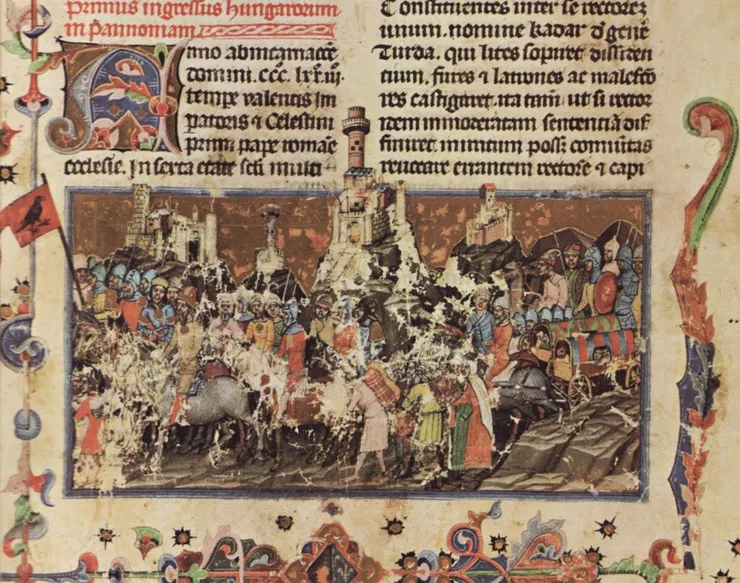 primus ingressus hungarorum
in pannoniam
Anno ab incarnacõe
domini. ccc. lxx.iij.
tempe valentis Im
patoris ⁊ Celestini
primi pape romãe
ecclesie. In sexta etate sc̃li multi
Constituentes inter se rectorẽ
unum. nomine kadar d'gene
Turda. qui lites sopiret dissiden
cium. fures ⁊ latrones ac malefco
res castigaret. ita tm̃. ut si rector
idem immoderatam sentenciã dif
finiret. irritum poss; com̃itas
reuocare errantem rectorẽ ⁊ capi